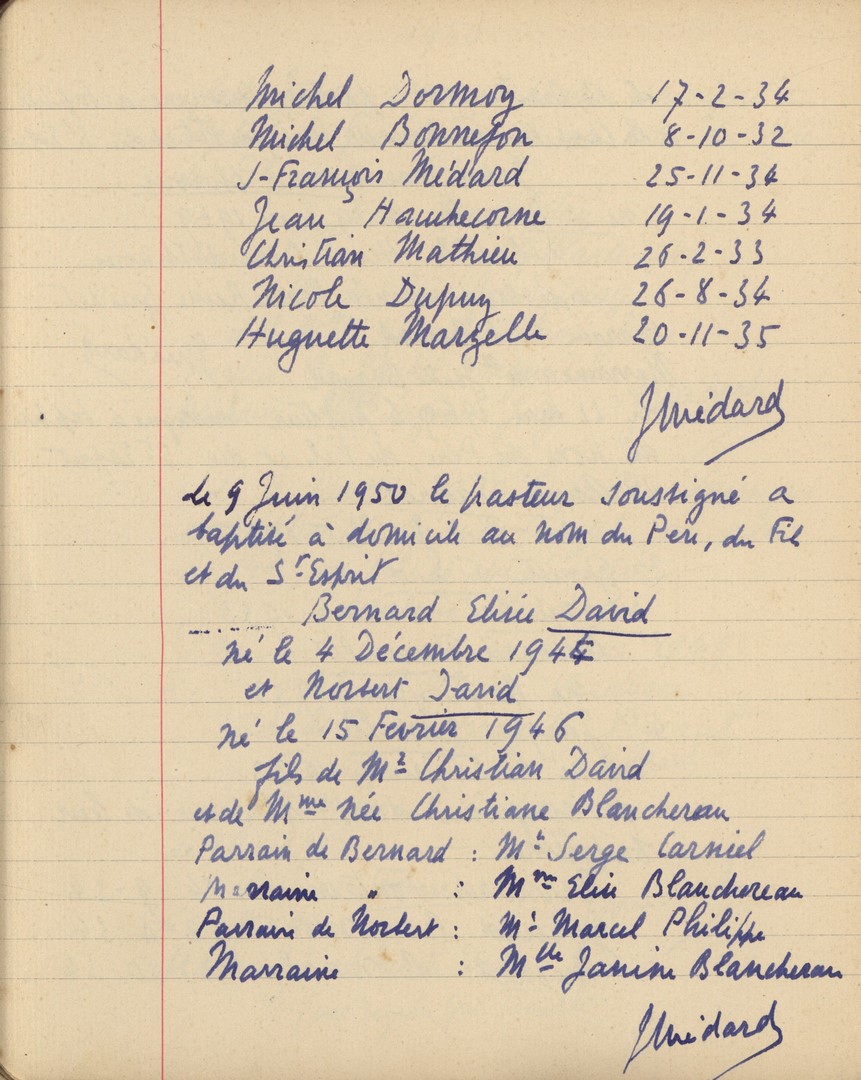 Michel Dormoy 17-2-34
Michel Bonnefon 8-10-32
J-François Médard 25-11-34
Jean Hauchecorne 19-1-34
Christian Mathieu 26-2-33
Nicole Dupuy 26-8-34
Huguette Marzelle 20-11-35
JMédard
Le 9 Juin 1950 le pasteur soussigné a
baptisé à domicile au nom du Père, du Fils
et du St Esprit
Bernard Elisée David
né le 4 Décembre 1944
et Norbert David
né le 15 Fevrier 1946
fils de Mr Christian David
et de Mme née Christiane Blanchereau
Parrain de Bernard : Mr Serge Carniel
Marraine " : Mme Elise Blanchereau
Parrain de Norbert : Mr Marcel Philippe
Marraine : Mlle Janine Blanchereau
JMédard